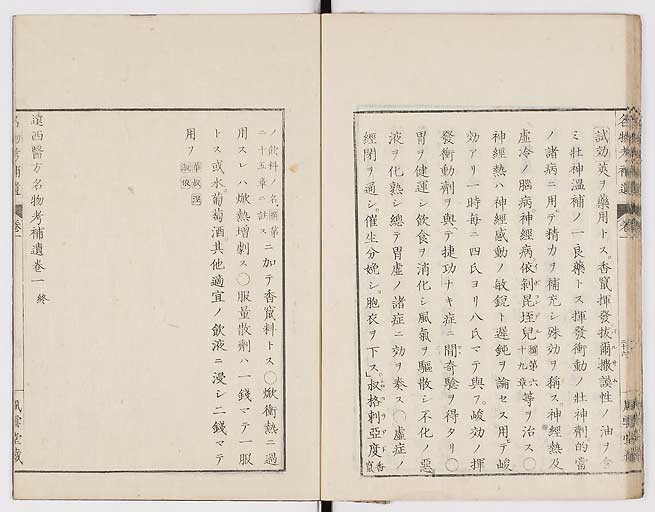 試効莢ヲ藥用トス。香竄揮發拔爾撒謨性ノ油ヲ含
ミ壯神溫補ノ一良藥トス揮發衝動ノ壯神劑的當
ノ諸病ニ用テ精力ヲ補充シ殊効ヲ稱ス。神經熱及
虛冷ノ腦病神經病。依剝昆垤兒第六十九章等ヲ治ス〇
神經熱ハ神經感動ノ敏鋭ト遲鈍ヲ論セス用テ峻
効アリ一時每ニ四氏ヨリ八氏マテ與フ。峻効ノ揮
發衝動劑ヲ與テ捷功ナキ症ニ間奇驗ヲ得タリ〇
胃ヲ健運シ飲食ヲ消化シ風氣ヲ驅散シ不化ノ惡
液ヲ化熟シ總テ胃虛ノ諸症ニ効ヲ奏ス〇虛症ノ
經閉ヲ通シ。催生分娩シ。胞衣ヲ下ス」叔格剌亞度香竄
ノ飲料ノ名第二十五章ニ註スニ加テ香竄料トス〇焮衝熱ニ過
用スレハ焮熱增劇ス〇服量散劑ハ一錢マテ一服
トス或水。葡萄酒其他適宜ノ飲液ニ浸シ二錢マテ
用ヲ
遠西醫方名物考補遺卷一 終
名物考補遺 卷一
風雲堂藏